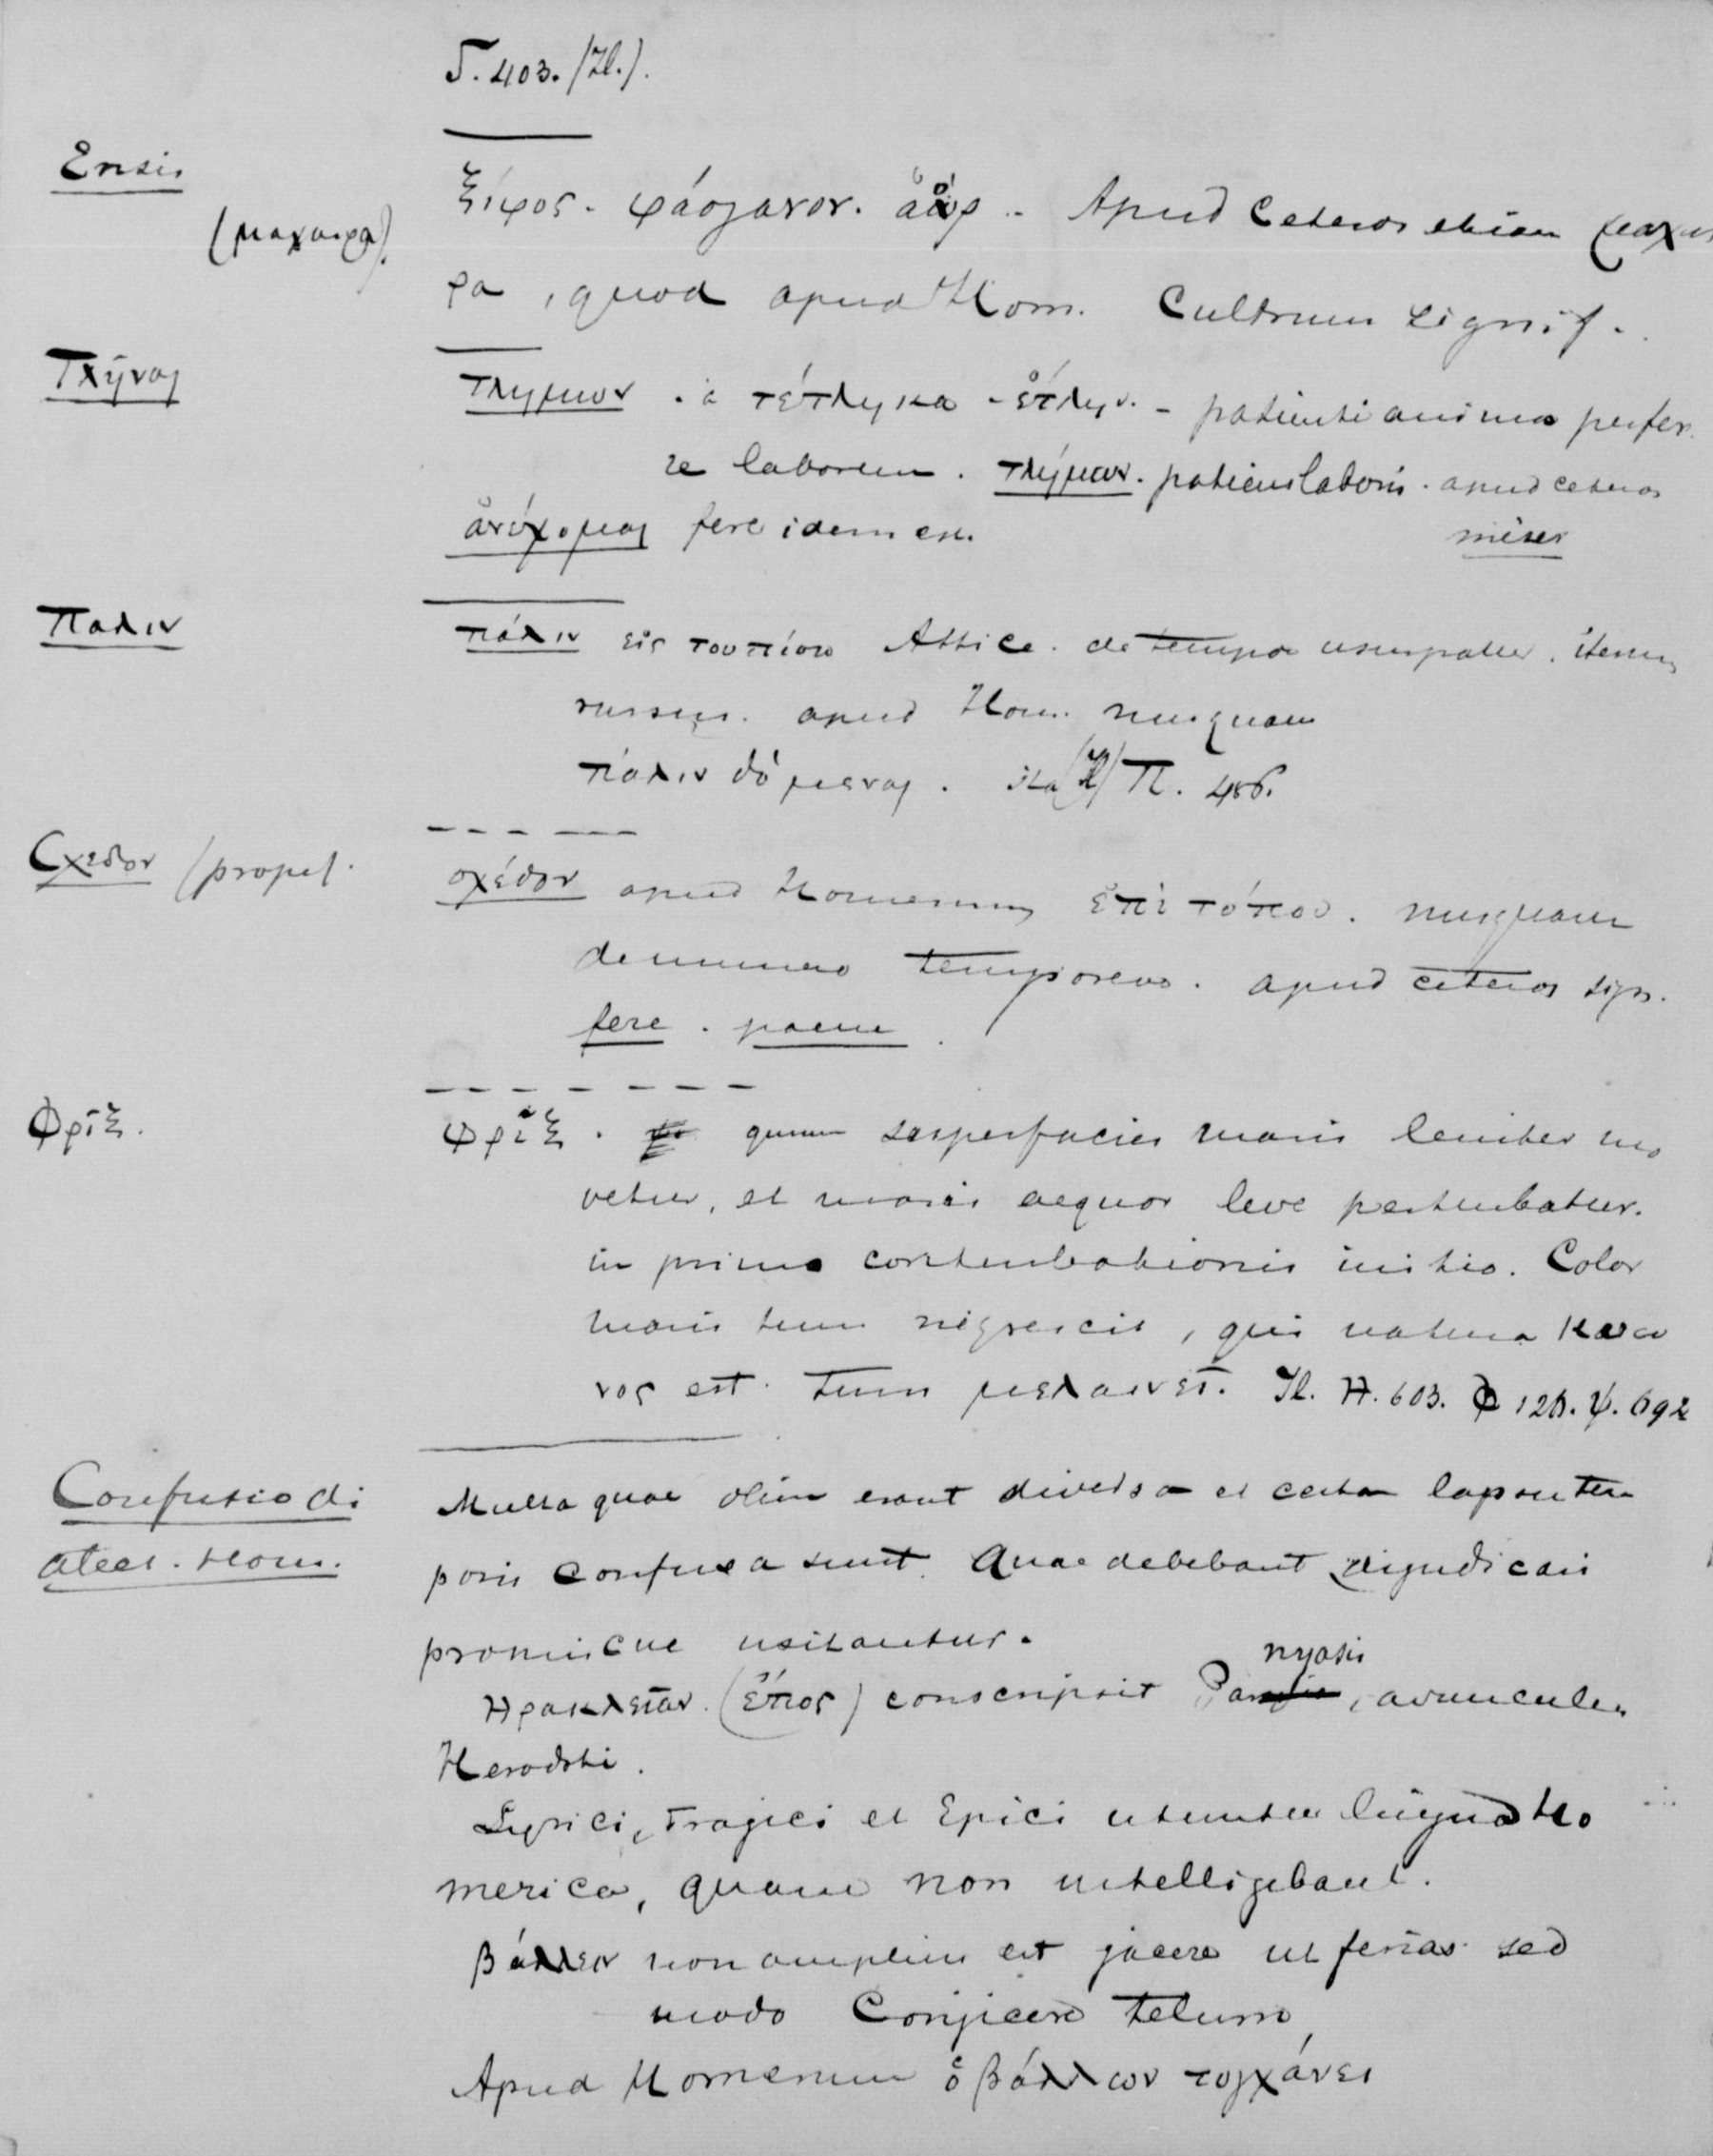 Γ. 403. (Il.).
Ensis
(μαχαιρα).
ξίφος. φάσγανον. ἄορ. Apud Ceteros etiam μαχαι
ρα, quod apud Hom. Cultrum signif.
Τλῆναι
τλημων. a τέτληκα - ἔτλην. - patienti animo perfer
re laborem. τλήμων. patiens laboris. apud ceteros
miser
ἀνέχομαι fere idem est.
Παλιν
πάλιν εἰς τουπίσω Attice. de tempore usurpatur. iterum
rursus. apud Hom. nusquam
πάλιν δόμεναι. ita (Il) Π. 456.
Σχεδον (prope).
σχέδον apud Homerum ἐπὶ τόπου. nusquam
de numero temporeve. apud ceteros sign.
fere. paene.
Φρῖξ.
Φρῖξ. quum superfacies maris leniter mo
vetur, et maris aequor leve perturbatur.
in primo conturbationis initio. Color
maris tum nigrescit, qui natura κυα
νος est. tum μελαινεῖ. Il. H. 603. Φ 126. Ψ. 692
Confusio di
alect. Hom.
Multa quae olim erant diversa et certa lapsu tem
poris confusa sunt. Quae debebant dijudicari
promiscue usitantur.
Ηρακλειαν. (ἔπος) conscripsit Panyasis, avunculus
Herodoti.
Lyrici, Tragici et Epici utuntur lingua Ho
merica, quam non intelligebant.
βάλλειν non amplius est jacere ut ferias sed
modo Conjicere telum,
Apud Homerum ὁ βάλλων τυγχάνει